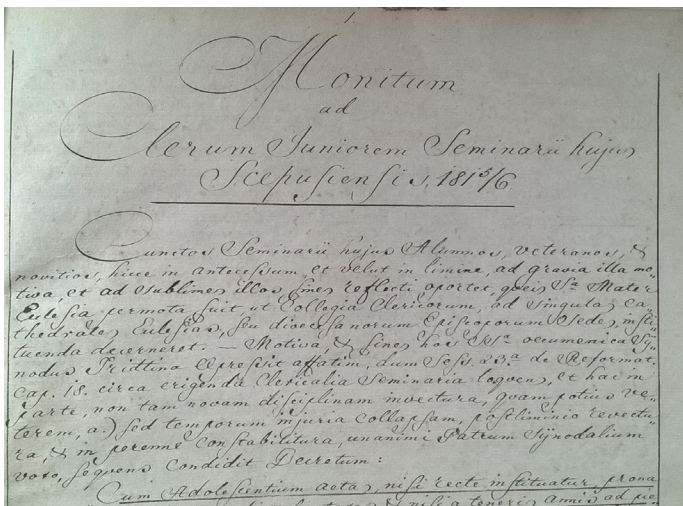 1.
Monitum
ad
Clerum Juniorem Seminarii hujus
Scepusiensis, 1815/6.
Cunctos Seminarii hujus Alumnos, veteranos, &
novitios, hicce in antecessum et velut in limine, ad gravia illa mo-
tiva, et ad sublimes illos fines reflecti oportet, queis Sta Mater
Eclesia permota fuit ut Collegia Clericorum, ad singulas Ca-
thedrales Eclesias, seu dioecesanorum Episcoporum Sedes, insti-
tuenda decerneret. — Motiva, & fines hos SSta oecumenica Sy-
nodus Tridttina expressit affatim, dum Sess. 23.a de Reformat.
cap. 18. circa erigenda Clericalia Seminaria loquens, et hac in
Parte, non tam novam disciplinam invectura, quam potius ve-
terem, a.) sed temporum injuria collapsam, postliminio revectu-
ra, & in perenne constabilitura, unanimi Patrum Synodalium
voto, sequens condidit Decretum:
Cum Adolescentium aetas, nisi recte instituatur, prona
& nisi a teneris annis ad pie-